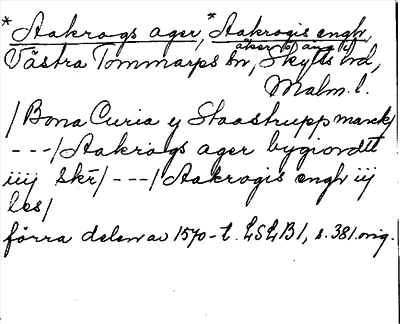 *Aakrogs ager, *Aakrogis engh,
åker o. äng i
Västra Tommarps sn, Skytts hd,
Malm. l.
/Bona Curia ij Staastrupp marck/
---/Aakrogs ager bygiordtt
iiij skr/---/Aakrogis engh iij
les/
förra delen av 1570-t. LSLB1, s. 381. orig.